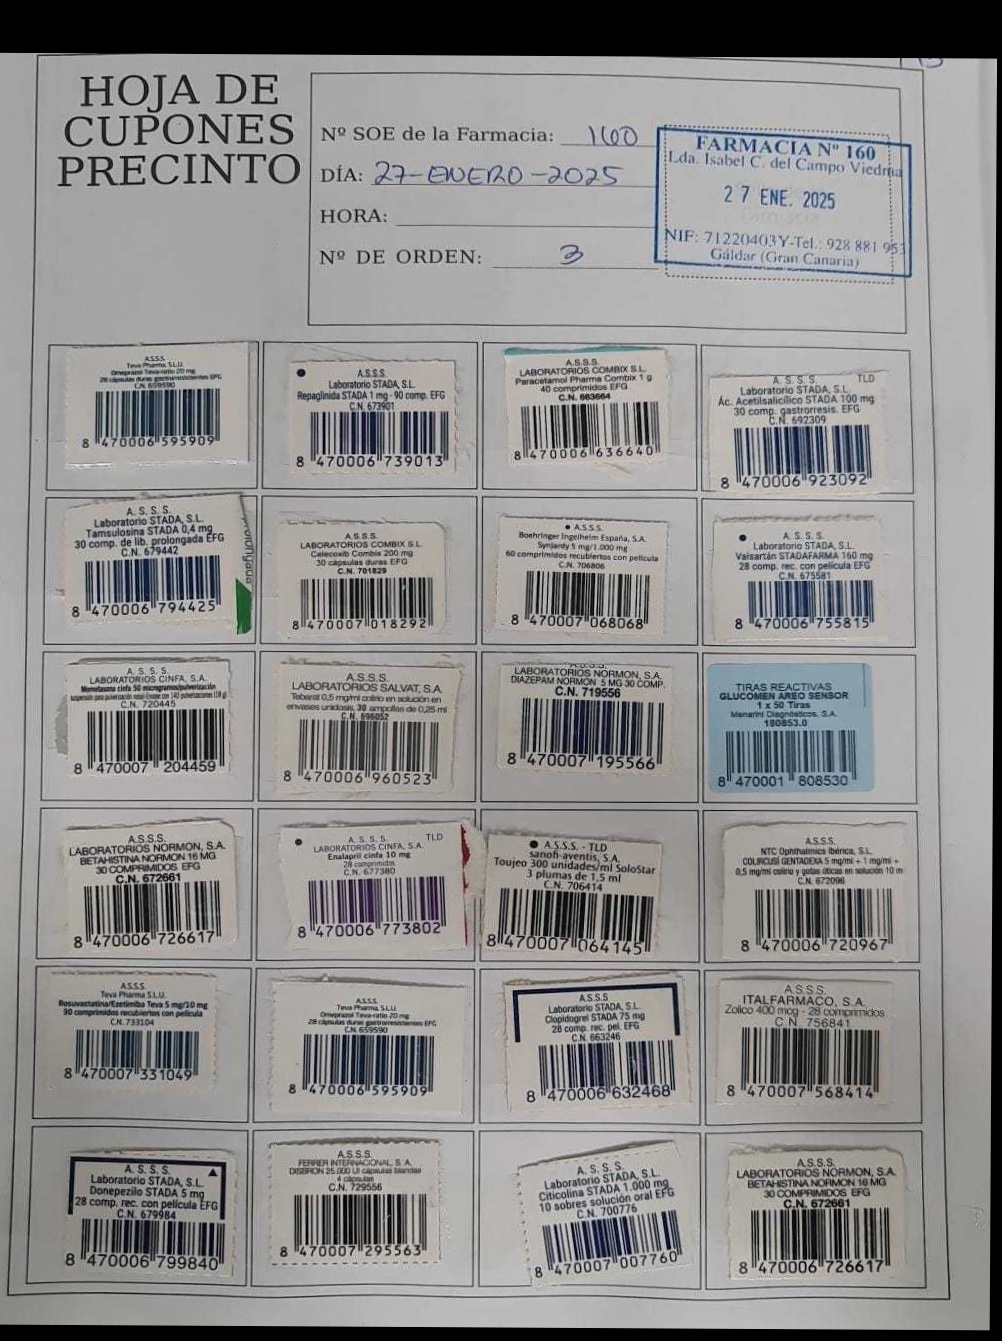 HOJA DE
CUPONES
PRECINTO
Nº SOE de la Farmacia: 160
DÍA: 27-ENERO-2025
HORA:
Nº DE ORDEN: 3
FARMACIA Nº 160
Lda. Isabel C. del Campo Viedma
27 ENE. 2025
NIF: 71220403Y-Tel.: 928 881 953
Gáldar (Gran Canaria)
A.S.S.S.
Teva Pharma, S.L.U.
Omeprazol Teva-ratio 20 mg
28 cápsulas duras gastrorresistentes EFG
C.N. 659590
8 470006 595909
A.S.S.S.
Laboratorio STADA, S.L.
Repaglinida STADA 1 mg - 90 comp. EFG
C.N. 673901
8 470006 739013
A.S.S.S.
LABORATORIOS COMBIX S.L.
Paracetamol Pharma Combix 1 g
40 comprimidos EFG
C.N. 663664
8 470006 636640
A. S. S. S. TLD
Laboratorio STADA, S.L.
Ác. Acetilsalicílico STADA 100 mg
30 comp. gastrorresis. EFG
C.N. 692309
8 470006 923092
A. S. S. S.
Laboratorio STADA, S.L.
Tamsulosina STADA 0,4 mg
30 comp. de lib. prolongada EFG
C.N. 679442
8 470006 794425
A.S.S.S.
LABORATORIOS COMBIX S.L.
Celecoxib Combix 200 mg
30 cápsulas duras EFG
C.N. 701829
8 470007 018292
A.S.S.S.
Boehringer Ingelheim España, S.A.
Synjardy 5 mg/1.000 mg
60 comprimidos recubiertos con película
C.N. 706806
8 470007 068068
A. S. S. S.
Laboratorio STADA, S.L.
Valsartán STADAFARMA 160 mg
28 comp. rec. con película EFG
C.N. 675581
8 470006 755815
A. S. S. S.
LABORATORIOS CINFA, S.A.
Mometasona cinfa 50 microgramos/pulverización
C.N. 720445
8 470007 204459
A.S.S.S.
LABORATORIOS SALVAT, S.A.
Tebarat 0,5 mg/ml colirio en solución en
envases unidosis, 30 ampollas de 0,25 ml
C.N. 696052
8 470006 960523
A.S.S.S.
LABORATORIOS NORMON, S.A.
DIAZEPAM NORMON 5 MG 30 COMP.
C.N. 719556
8 470007 195566
TIRAS REACTIVAS
GLUCOMEN AREO SENSOR
1 x 50 Tiras
Menarini Diagnósticos, S.A.
180853.0
8 470001 808530
A.S.S.S.
LABORATORIOS NORMON, S.A.
BETAHISTINA NORMON 16 MG
30 COMPRIMIDOS EFG
C.N. 672661
8 470006 726617
A. S. S. S. TLD
LABORATORIOS CINFA, S.A.
Enalapril cinfa 10 mg
28 comprimidos
C.N. 677380
8 470006 773802
A.S.S.S. - TLD
sanofi-aventis, S.A.
Toujeo 300 unidades/ml SoloStar
3 plumas de 1,5 ml
C.N. 706414
8 470007 064145
A.S.S.S.
NTC Ophthalmics Ibérica, S.L.
COLIRCUSÍ GENTADEXA 5 mg/ml + 1 mg/ml +
0,5 mg/ml colirio y gotas óticas en solución 10 m
C.N. 672096
8 470006 720967
A.S.S.S.
Teva Pharma S.L.U.
Rosuvastatina/Ezetimiba Teva 5 mg/10 mg
30 comprimidos recubiertos con película
C.N. 733104
8 470007 331049
A.S.S.S.
Teva Pharma, S.L.U.
Omeprazol Teva-ratio 20 mg
28 cápsulas duras gastrorresistentes EFG
C.N. 659590
8 470006 595909
A.S.S.S
Laboratorio STADA, S.L.
Clopidogrel STADA 75 mg
28 comp. rec. pel. EFG
C.N. 663246
8 470006 632468
A.S.S.S.
ITALFARMACO, S.A.
Zolico 400 mcg - 28 comprimidos
C.N. 756841
8 470007 568414
A. S. S. S.
Laboratorio STADA, S.L.
Donepezilo STADA 5 mg
28 comp. rec. con película EFG
C.N. 679984
8 470006 799840
A.S.S.S.
FERRER INTERNACIONAL, S. A.
DISBRON 25.000 UI cápsulas blandas
4 cápsulas
C.N. 729556
8 470007 295563
A. S. S. S.
Laboratorio STADA, S.L.
Citicolina STADA 1.000 mg
10 sobres solución oral EFG
C.N. 700776
8 470007 007760
A.S.S.S.
LABORATORIOS NORMON, S.A.
BETAHISTINA NORMON 16 MG
30 COMPRIMIDOS EFG
C.N. 672661
8 470006 726617